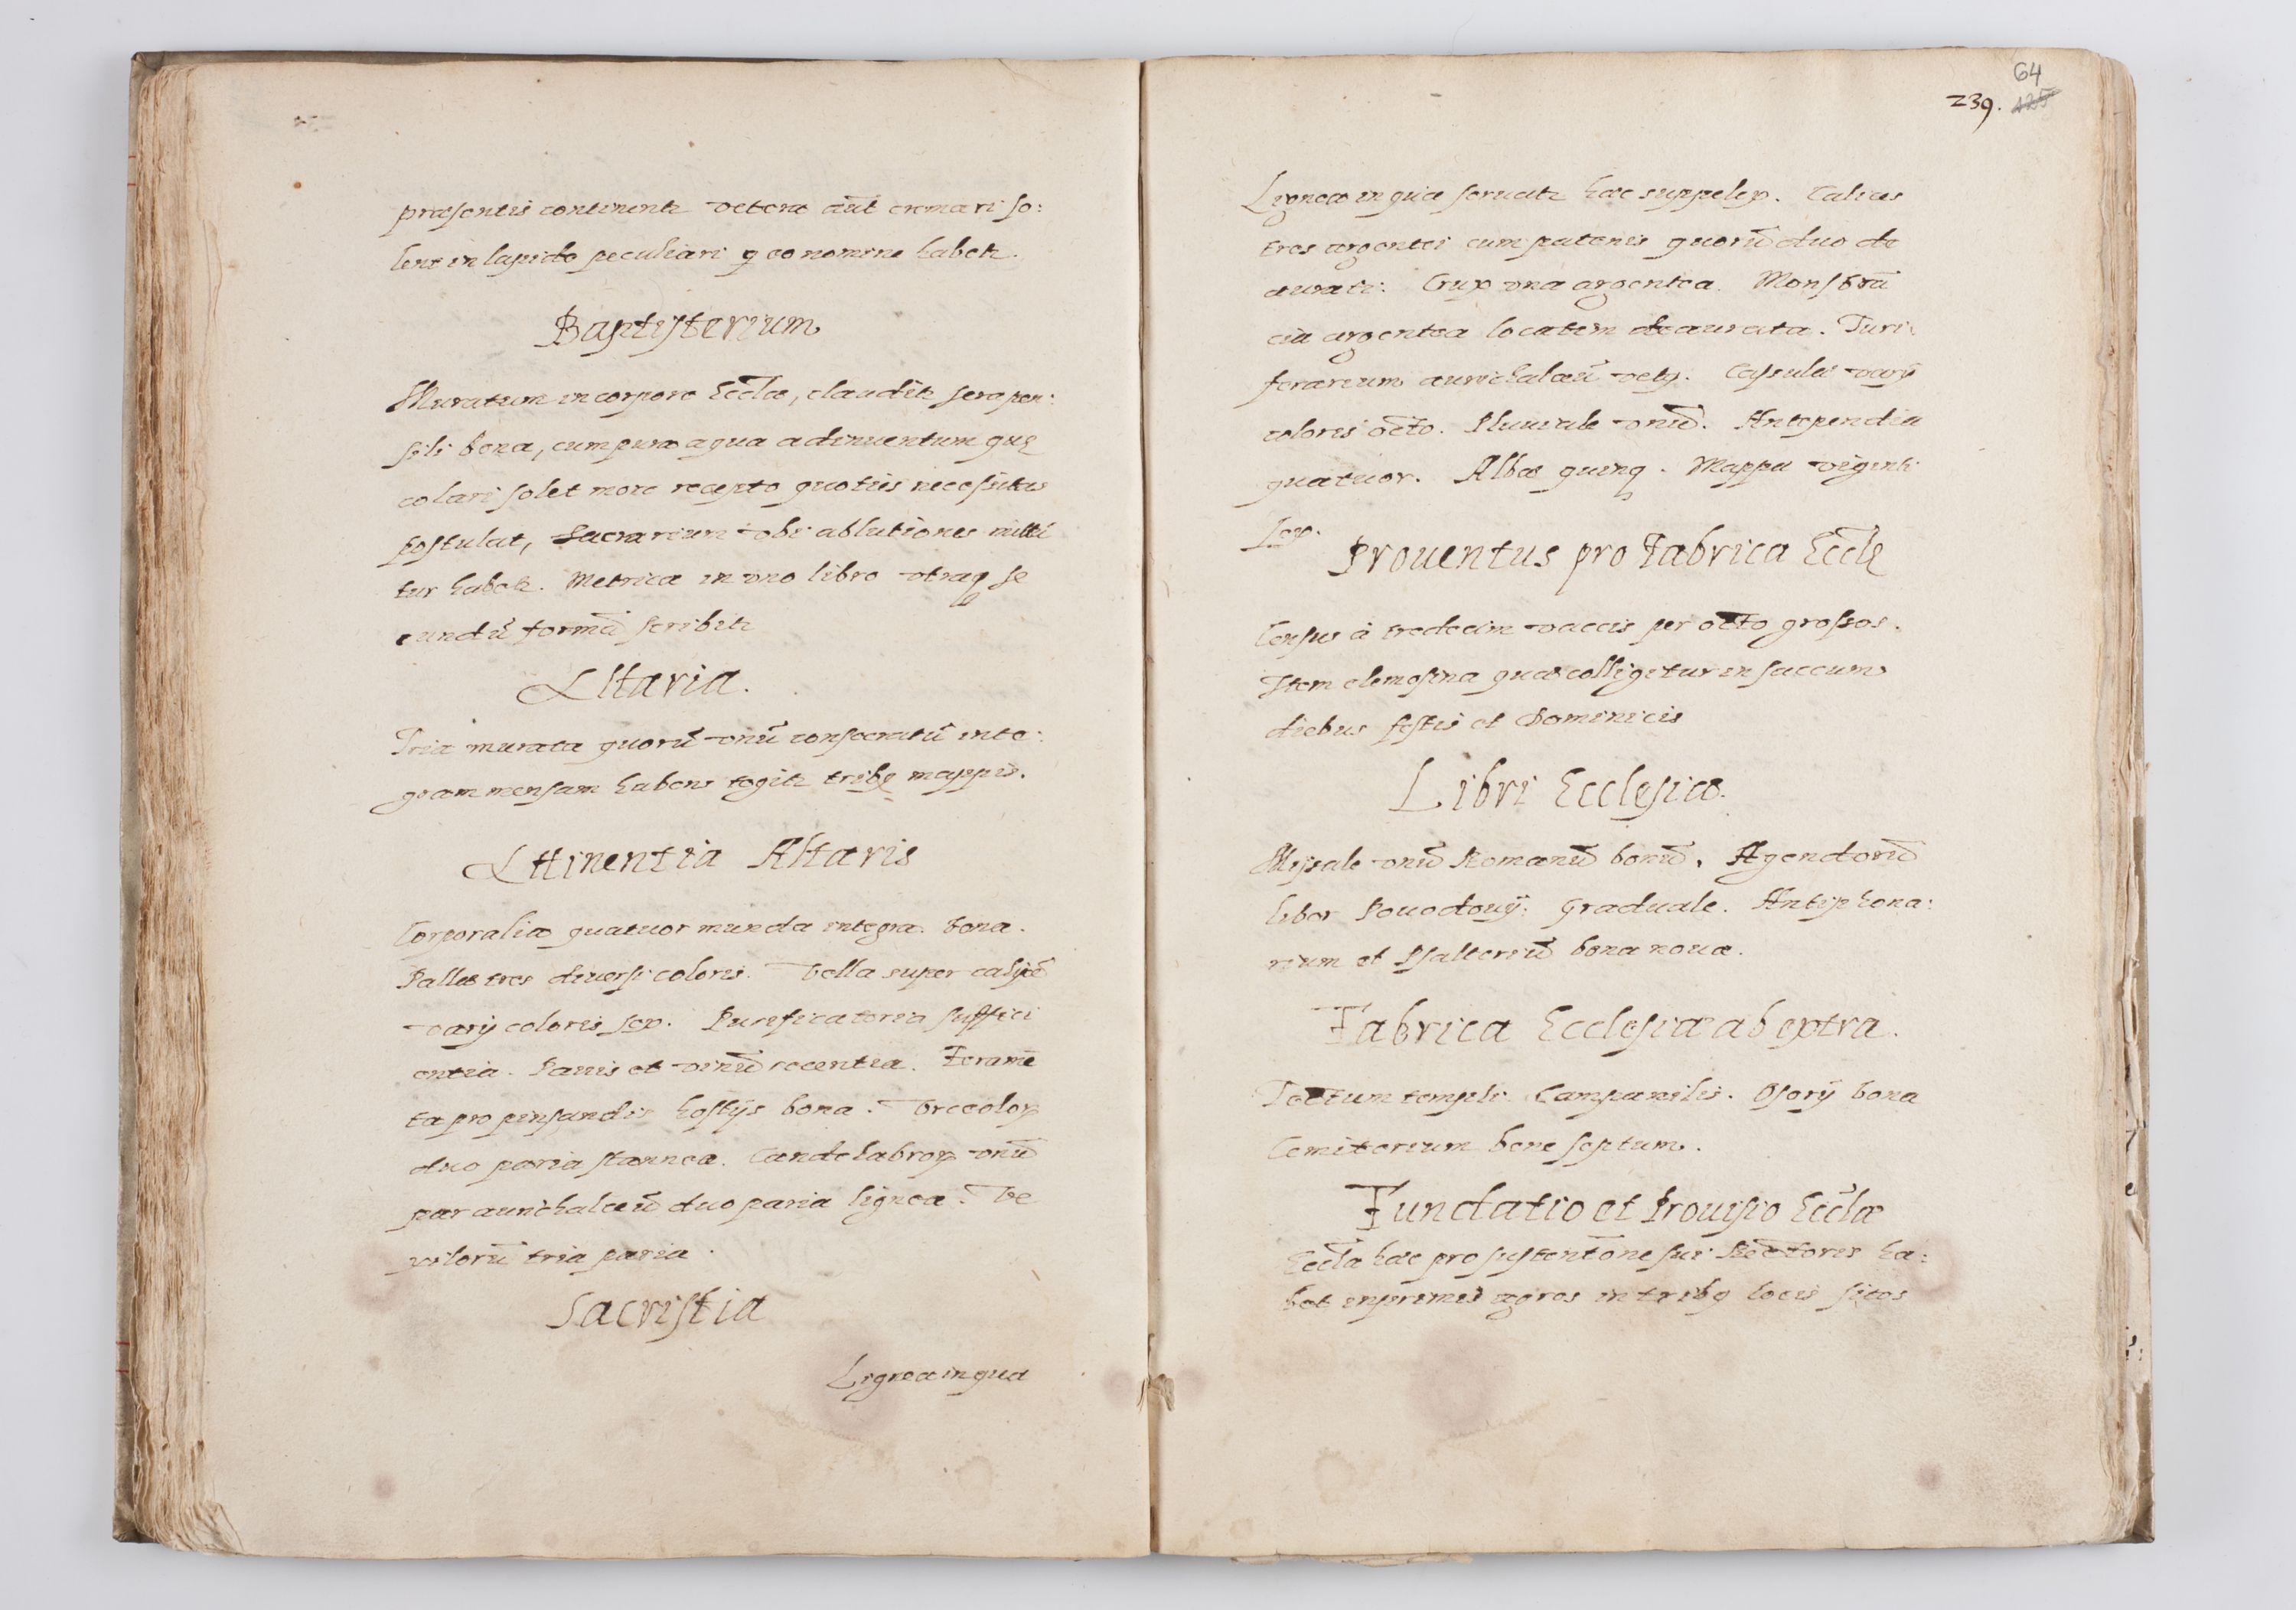 præsentis continentr vetera aūt cremari so:
lent in lapide peculiari q eo nomine habetr.
Baptisterium
Muratum in corpore Eccłæ, clauditr sera pen:
sili bona, cum pura aqua adinuentum quę
colari solet more recepto quoties necessitas
postulat, Sacrarium vbi ablutiones mitti
tur habetr. Metrica in vno libro vtraq se
cundū formā scribitr
Altaria.
Tria murata quorū vnū consecratū inte:
gram mensam habens tegitr tribq mappis.
Attinentia Altaris
Corporalia quatuor munda integra bona.
Pallæ tres diuersi coloris. Vella super calicē
varij coloris sex. Purificatoria suffici
entia. Panis et vinū recentia. Feramē
ta pro pinsandis hostijs bona. Vrceolor
duo paria stannea. Candelabror vnū
par aurichalceū duo paria lignea. Ve
xilorū tria paria.
Sacristia
Lignea in qua
64
239. 125
Lignea in qua seruatr hæc suppelex. Calices
tres argentei cum patenis quorū duo de
aurati. Crux vna argentea. Monstrā
cia argentea locatim deaurata. Turi:
ferarium aurichalceū vetq. Casulæ varij
coloris octo. Pluuiale vnū. Antependia
quatuor. Albæ quinq. Mappæ viginti
sex.
Prouentus pro Fabrica Eccłę
Census à tredecim vaccis per octo grossos.
Item elemosina quæ colligitur in saccum
diebus festis et Dominicis
Libri Ecclesiæ.
Missale vnū Romanū bonū. Agendorū
liber Pouodouij. Graduale. Antiphona:
rium et Psalteriū bona noua.
Fabrica Ecclesiæ ab extra.
Tectum templi Campanilis. Osorij bona
Cemiterium bene septum.
Fundatio et Prouisio Eccłæ
Eccła hæc pro sustentōne sui Rectoris ha:
bet inprimis agros in tribq locis sitos